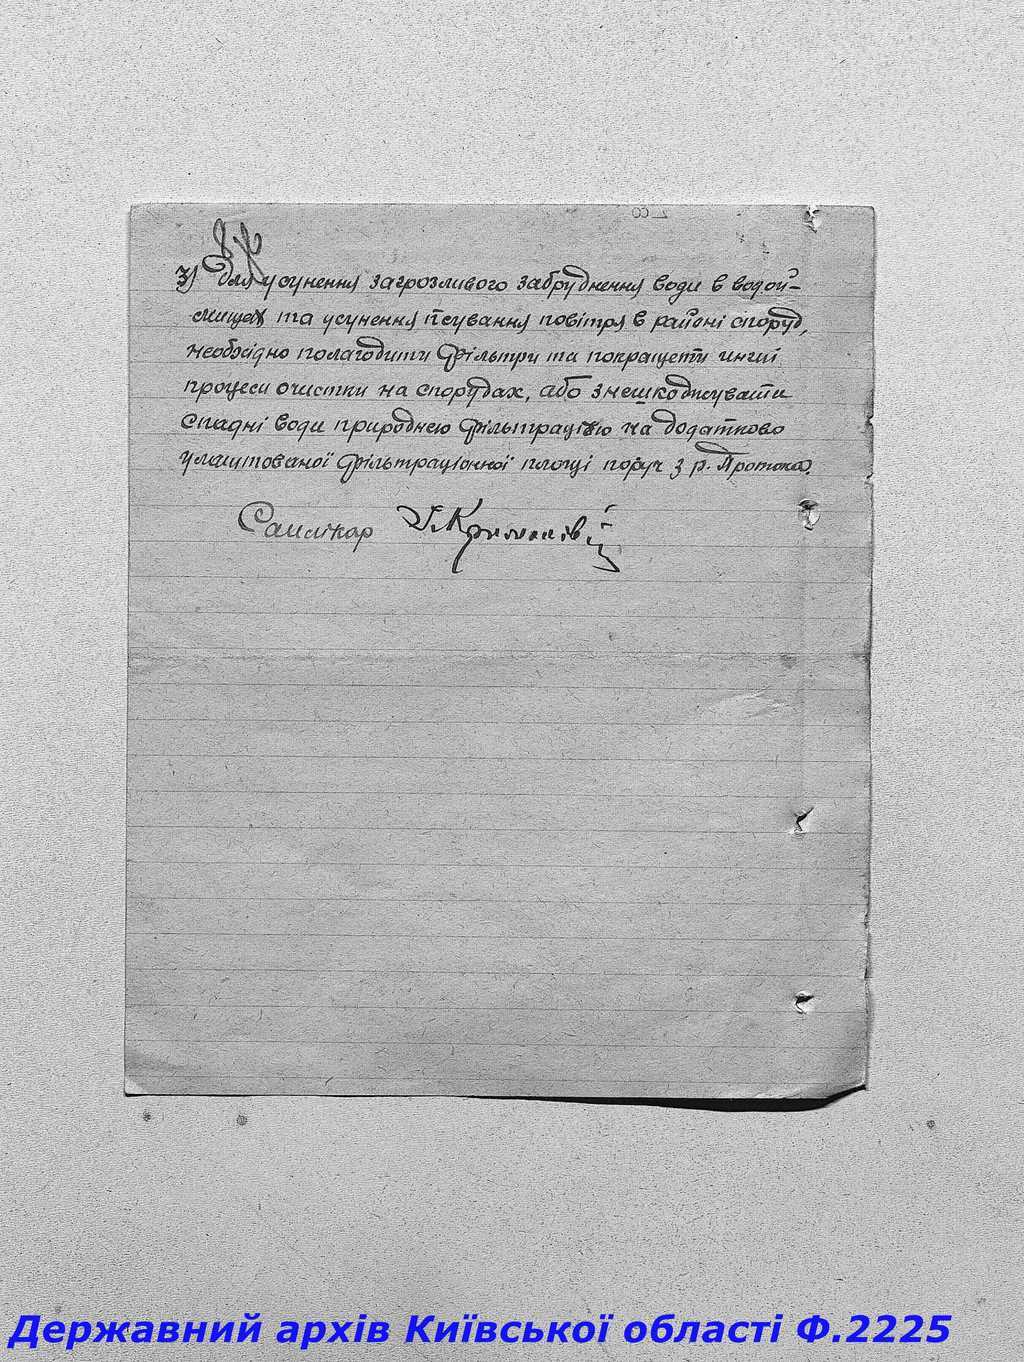 3) Для усунення загрозливого забруднення води в водой-
мищах та усунення псування повітря в районі споруд,
необхідно полагодити фільтри та покращети инші
процеси очистки на спорудах, або знешкоджувати
спадні води природнею фільтрацією на додатково
улаштованої фільтраціонної площі поруч з р. Протока.
Санлікар
Державний архів Київської області Ф.2225